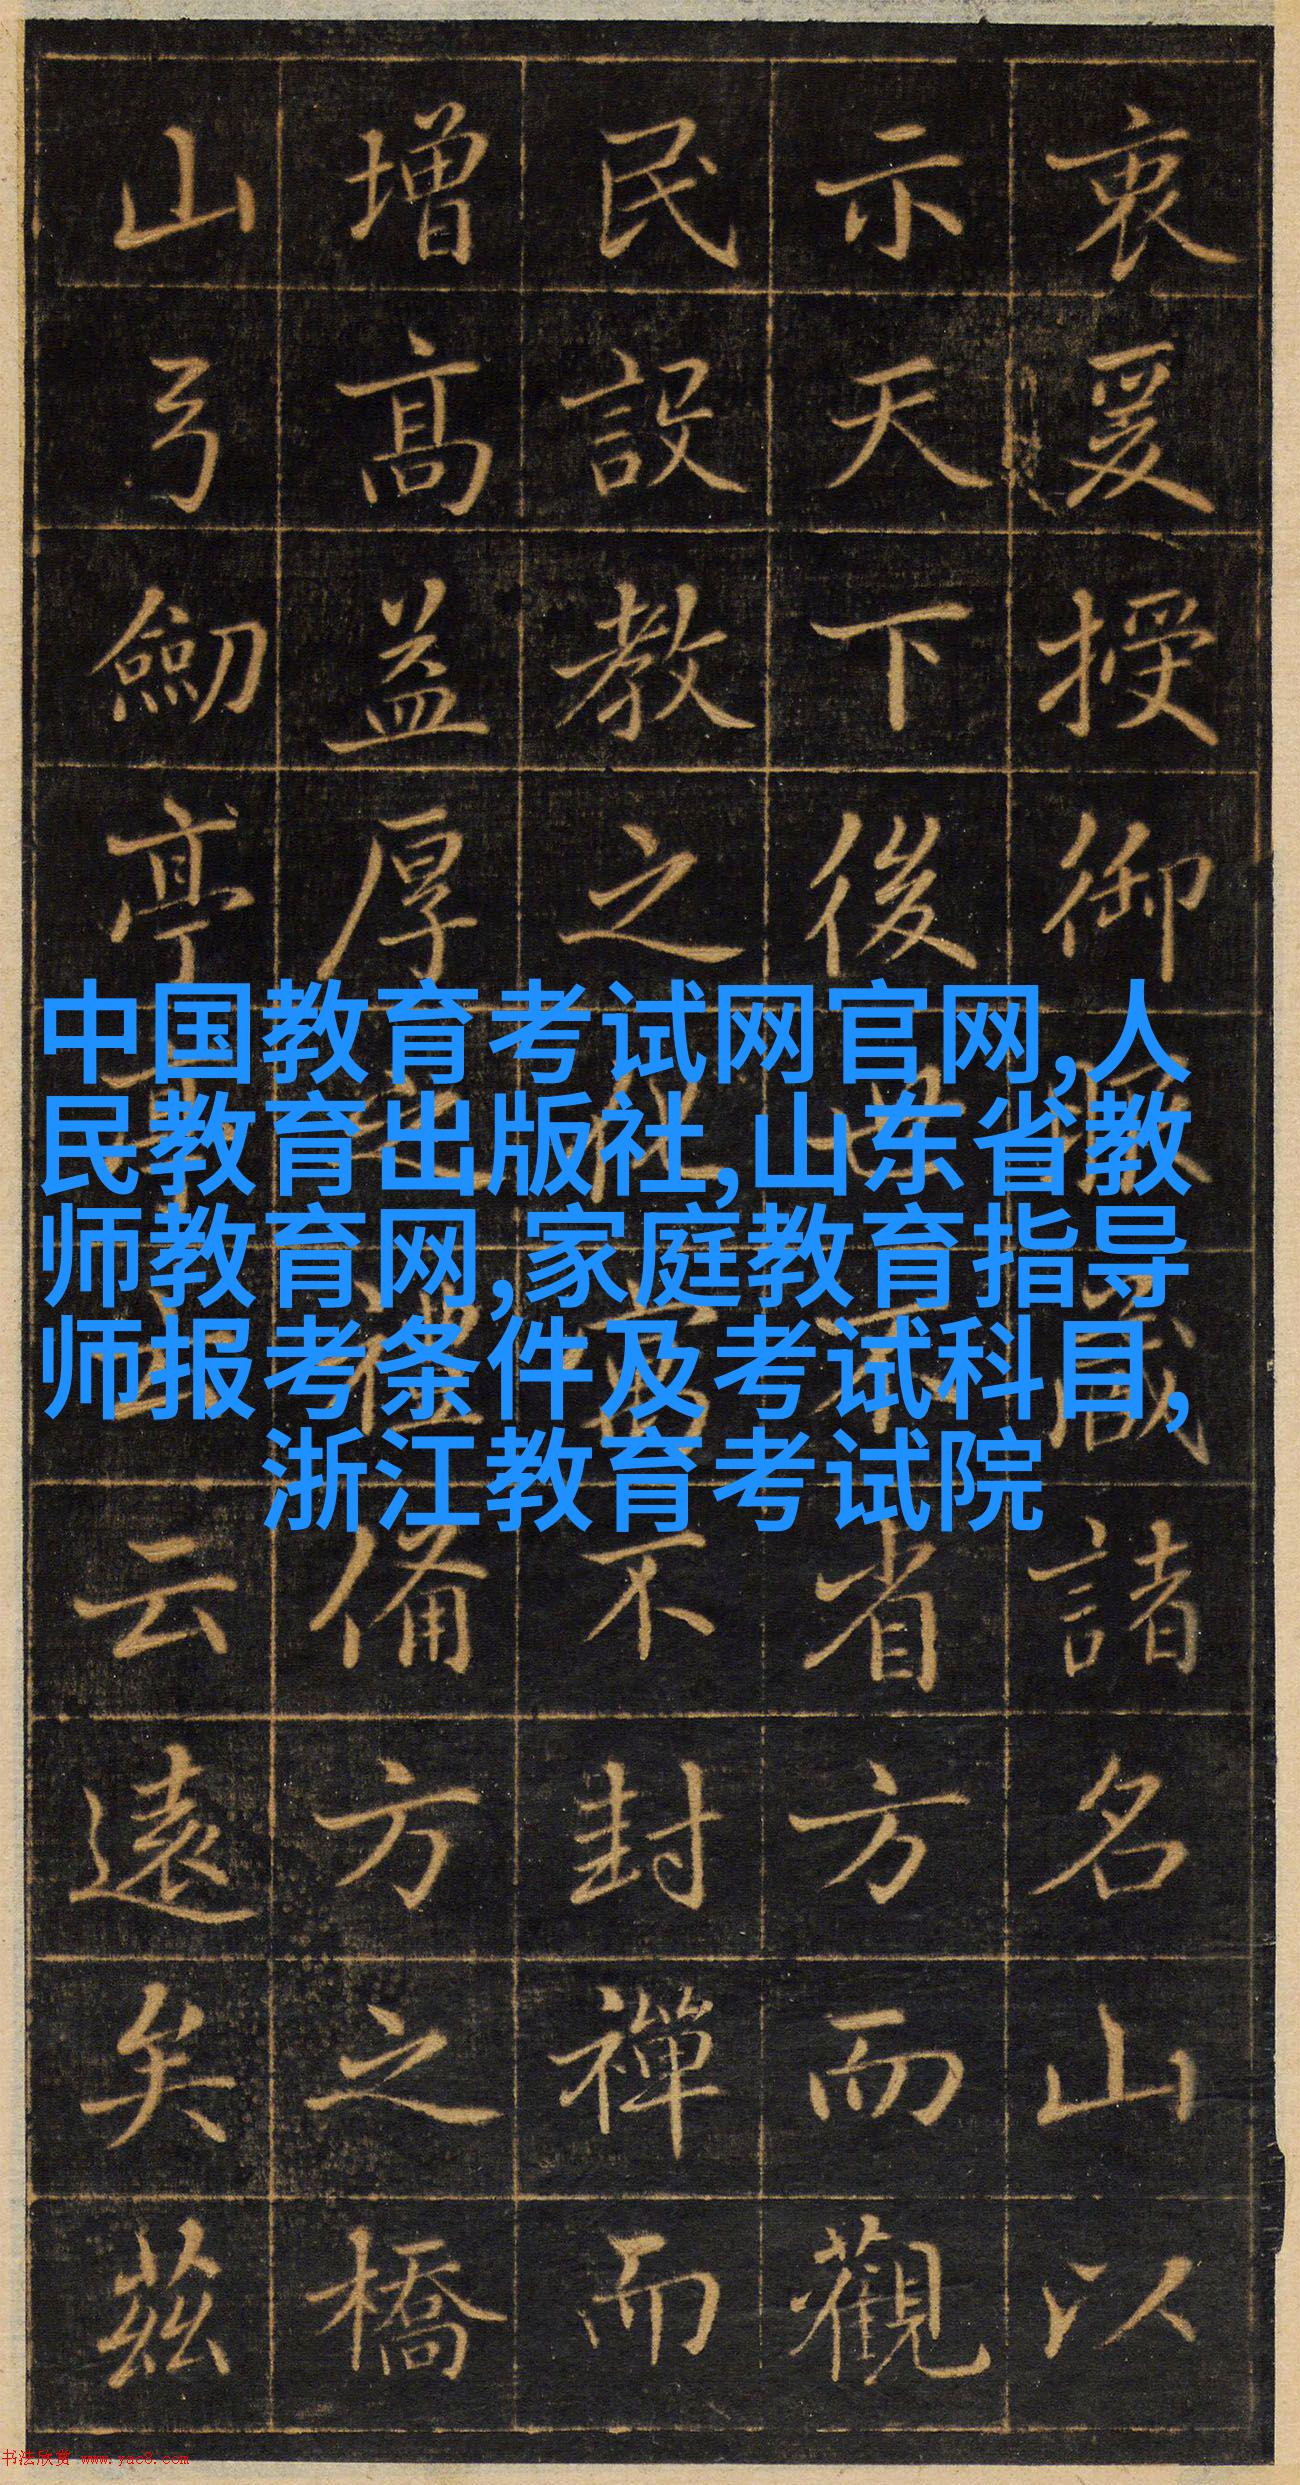 衷爰授御諸名山以
示天下後世省方而觀
民設教之不封禪而
增高益厚備方之橋
山弓劒亭云遠矣茲
中国教育考试网官网,人
民教育出版社,山东省教
师教育网,家庭教育指导
师报考条件及考试科目,
浙江教育考试院
书法欣赏 www.yac8.com